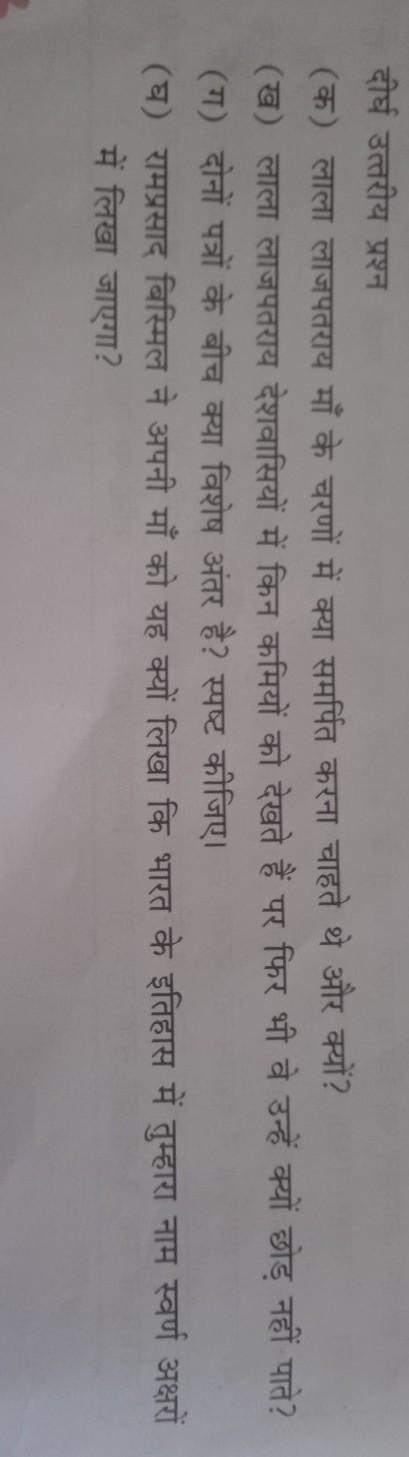 दीर्घ उत्तरीय प्रश्न
(क) लाला लाजपतराय माँ के चरणों में क्या समर्पित करना चाहते थे और क्यों?
(ख) लाला लाजपतराय देशवासियों में किन कमियों को देखते हैं पर फिर भी वे उन्हें क्यों छोड़ नहीं पाते?
(ग) दोनों पत्रों के बीच क्या विशेष अंतर है? स्पष्ट कीजिए।
(घ) रामप्रसाद बिस्मिल ने अपनी माँ को यह क्यों लिखा कि भारत के इतिहास में तुम्हारा नाम स्वर्ण अक्षरों
में लिखा जाएगा?